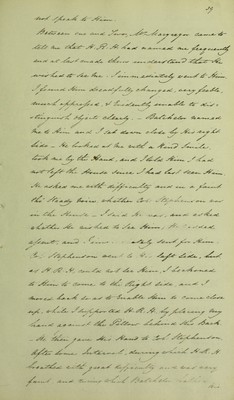 39
not speak to Him
Between one and Two, Mr. Macgregor came to
tell me that H.R.H had named me frequently
and at last made them understand that He
wished to see me. I immediately went to Him,
I found Him dreadfully changed, very feeble,
much oppressed & evidently unable to dis-
tinguish objects clearly. Batchelor named
me to Him and I sat down close by His right
side. He looked at me with a Kind Smile,
took me by the Hand, and I told Him I had
not left the House since I had last seen Him.
He asked me with difficulty and in a faint
tho' Steady Voice whether Col Stephenson was
in the House. I said He was, and asked
whether He wished to see Him, He nodded
assent, and I sent for Him.
Col. Stephenson went to His left side, but
as H.R.H. could not see Him, I beckoned
to Him to come to the Right side, and I
moved back so as to enable Him to come close
up, while I supported H.R.H. by placing my
hand against the Pillow behind His Back
He then gave His Hand to Col. Stephenson
After some Interval, during which H.R.H
breathed with great difficulty and was very
faint and during which Batchelor